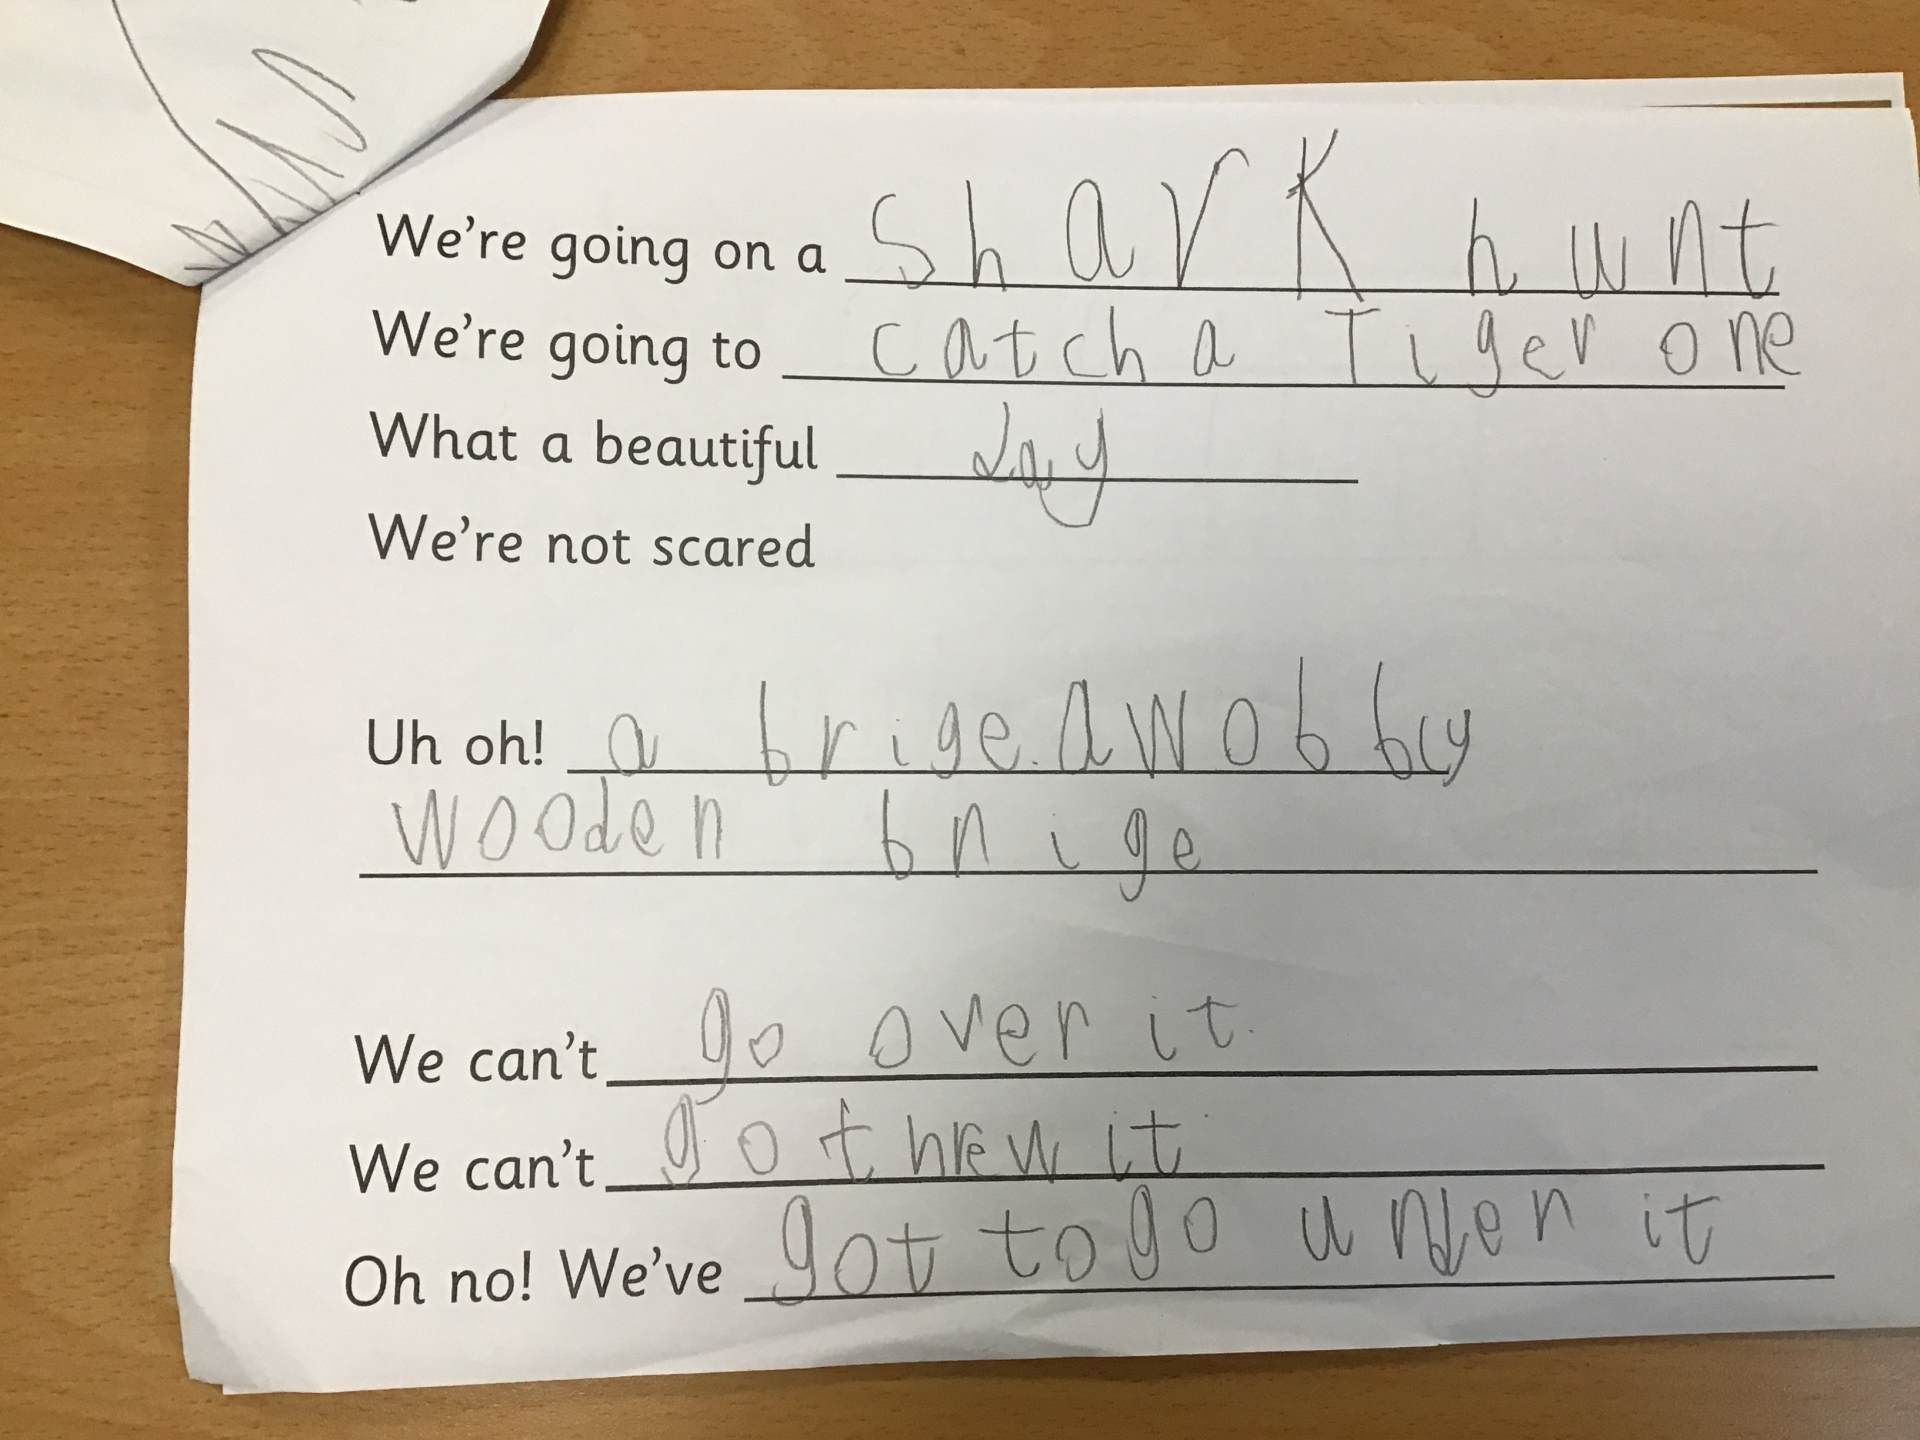 We're going on a shark hunt
We're going to catch a Tiger one
What a beautiful day
We're not scared
Uh oh! a brige. A wobbly
wooden brige
We can't go over it.
We can't go threw it
Oh no! We've got to go under it